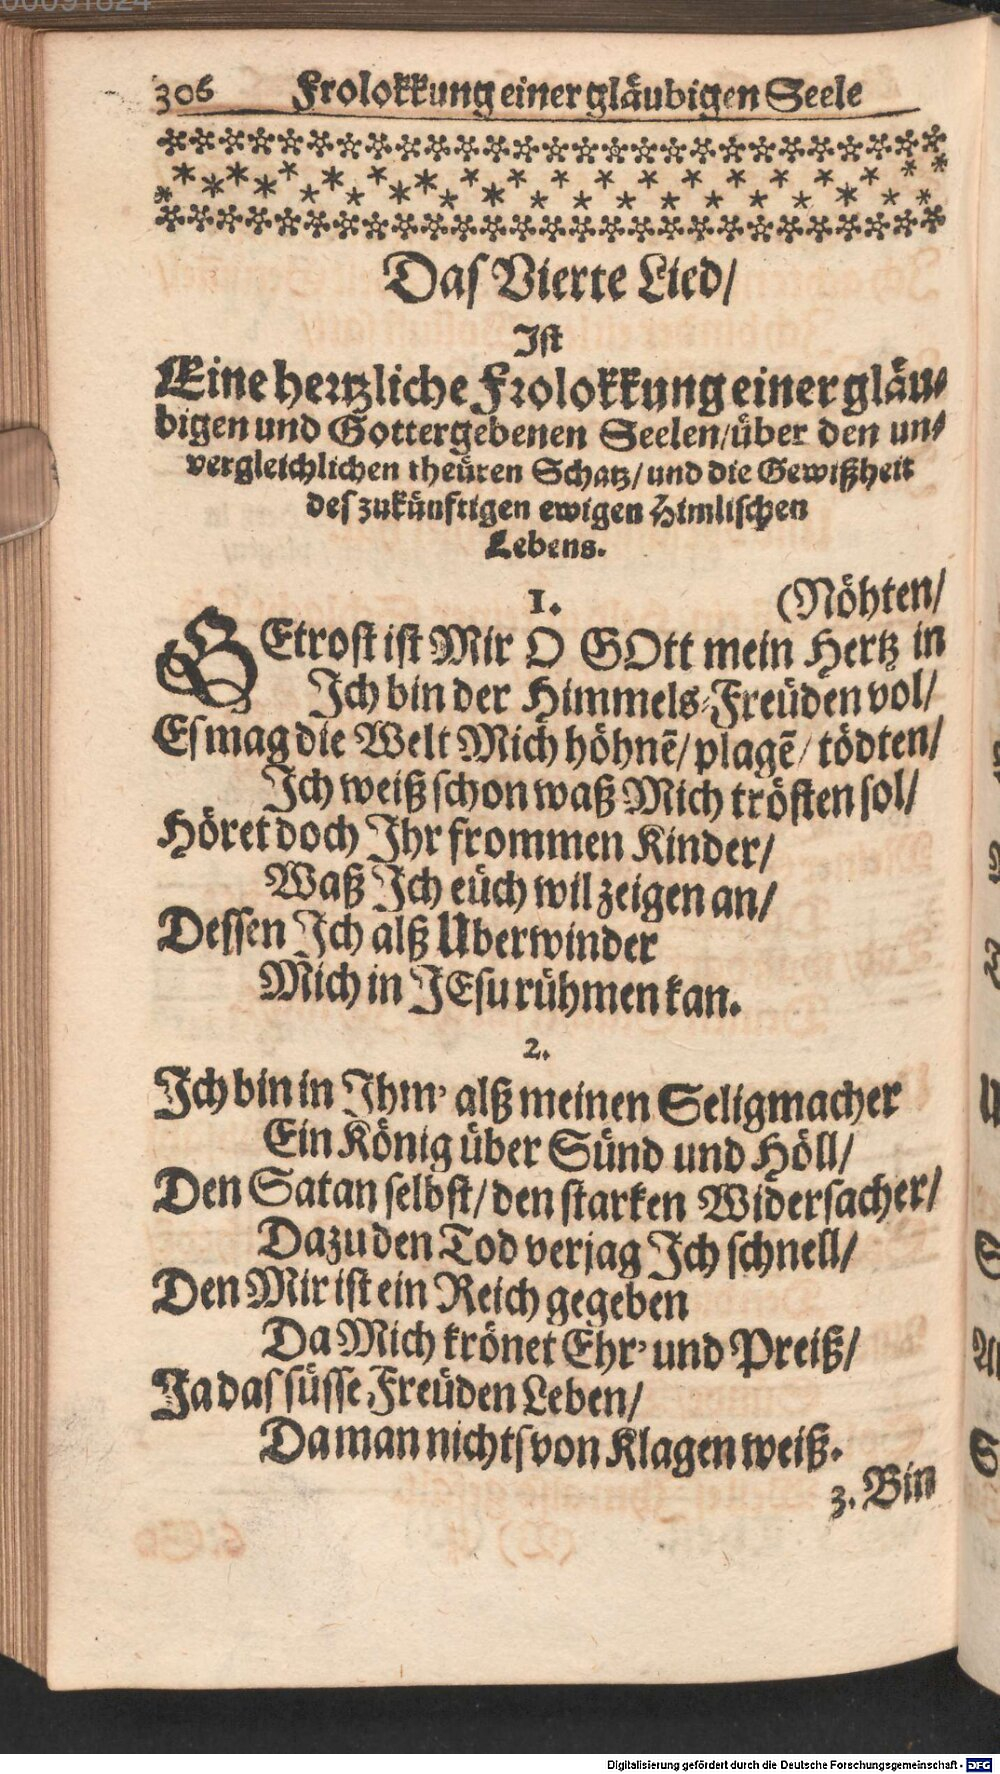 306 Frolokkung einer gläubigen Seele
Das Vierte Lied/
Ist
Eine hertzliche Frolokkung einer gläu-
bigen und Gottergebenen Seelen/über den un-
vergleichlichen theüren Schatz/und die Gewißheit
des zukünftigen ewigen Himlischen
Lebens.
1. (Nöhten/
GEtrost ist Mir O GOtt mein Hertz in
Ich bin der Himmels-Freüden vol/
Es mag die Welt Mich höhnē/plagē/tödten/
Ich weiß schon waß Mich trösten sol/
Höret doch Ihr frommen Kinder/
Waß Ich eüch wil zeigen an/
Dessen Ich alß Uberwinder
Mich in JEsu rühmen kan.
2.
Ich bin in Ihm' alß meinen Seligmacher
Ein König über Sünd und Höll/
Den Satan selbst/den starken Widersacher/
Dazu den Tod verjag Ich schnell/
Den Mir ist ein Reich gegeben
Da Mich krönet Ehr' und Preiß/
Ja das süsse Freüden Leben/
Da man nichts von Klagen weiß.
3. Bin
Digitalisierung gefördert durch die Deutsche Forschungsgemeinschaft - DFG